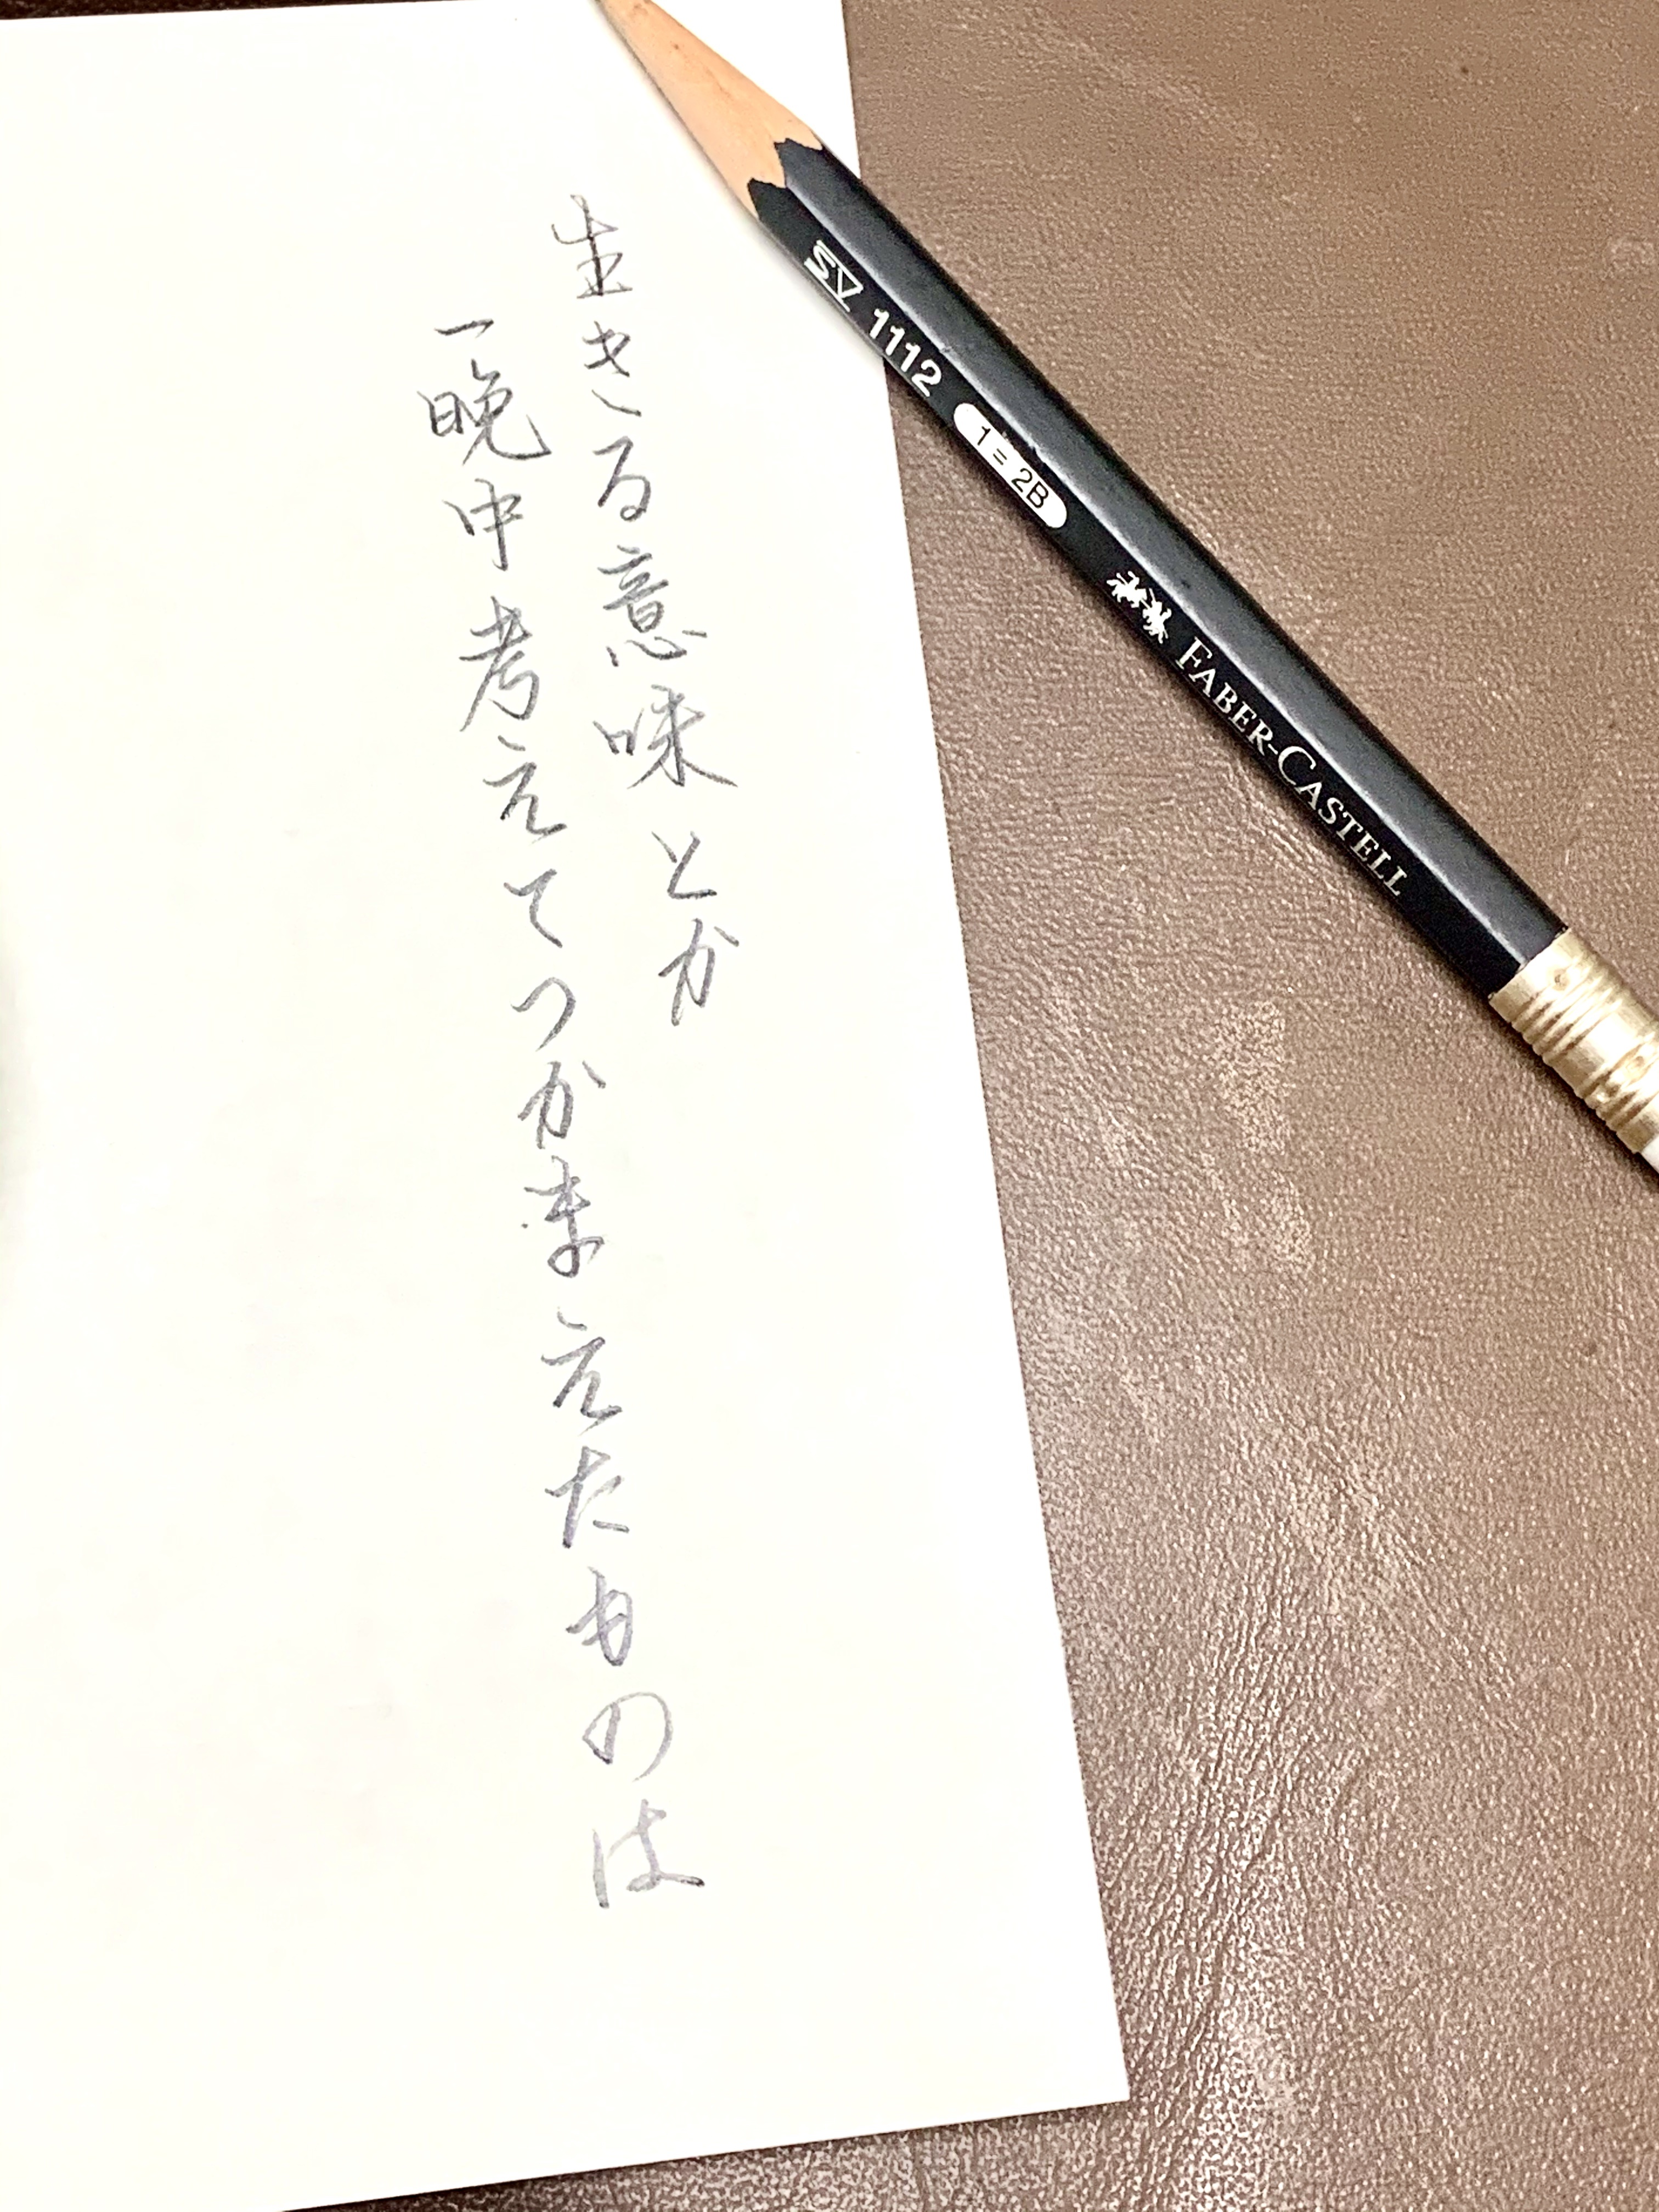 生きる意味とか
一晩中考えてつかまえたものは
SV 1112 1=2B FABER-CASTELL